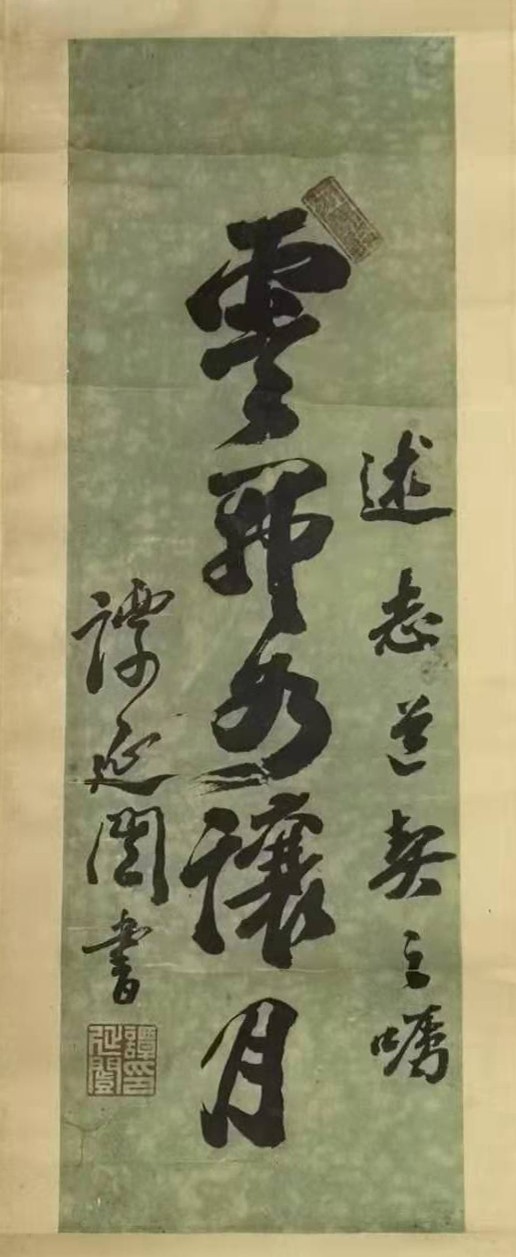 述志道契之囑
雲歸如讓月
譚延闓書
譚延闓印